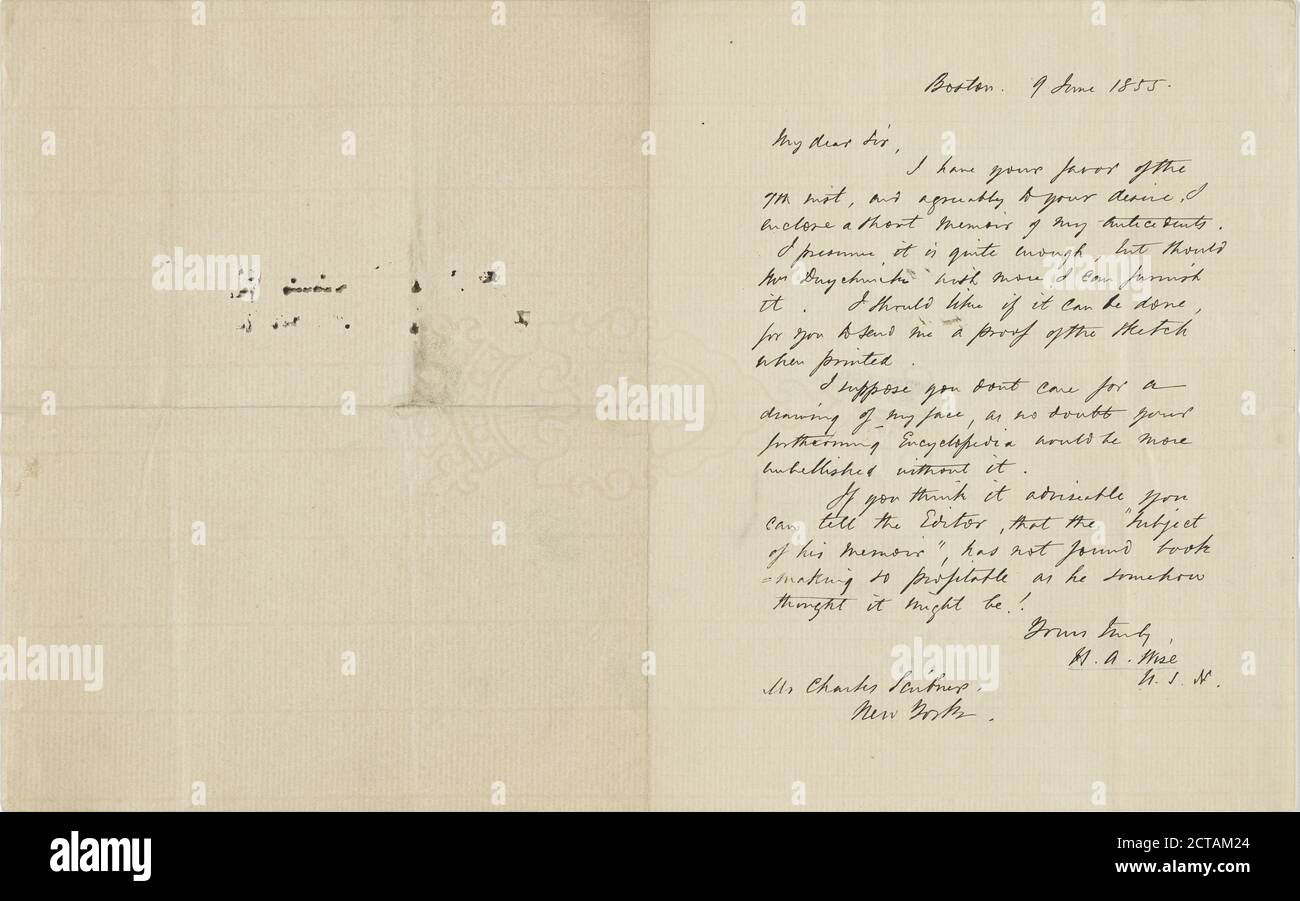 Boston. 9 June 1855.
My dear Sir,
I have your favor of the
7th inst, and agreeably to your desire, I
enclose a short memoir of my antecedents.
I presume it is quite enough, but should
Mr Duyckinck wish more I can furnish
it. I should like if it can be done,
for you to send me a proof of the sketch
when printed.
I suppose you dont care for a
drawing of my face, as no doubt your
forthcoming Encyclopedia would be more
embellished without it.
If you think it adviseable you
can tell the Editor, that the "subject
of his memoir", has not found book
=making so profitable as he somehow
thought it might be!.
Yours truly,
H. A. Wise
U. S. N.
Mr Charles Scribner.
New York.
alamy
alamy
alamy
alamy
alamy
alamy
alamy
Image ID: 2CTAM24
www.alamy.com